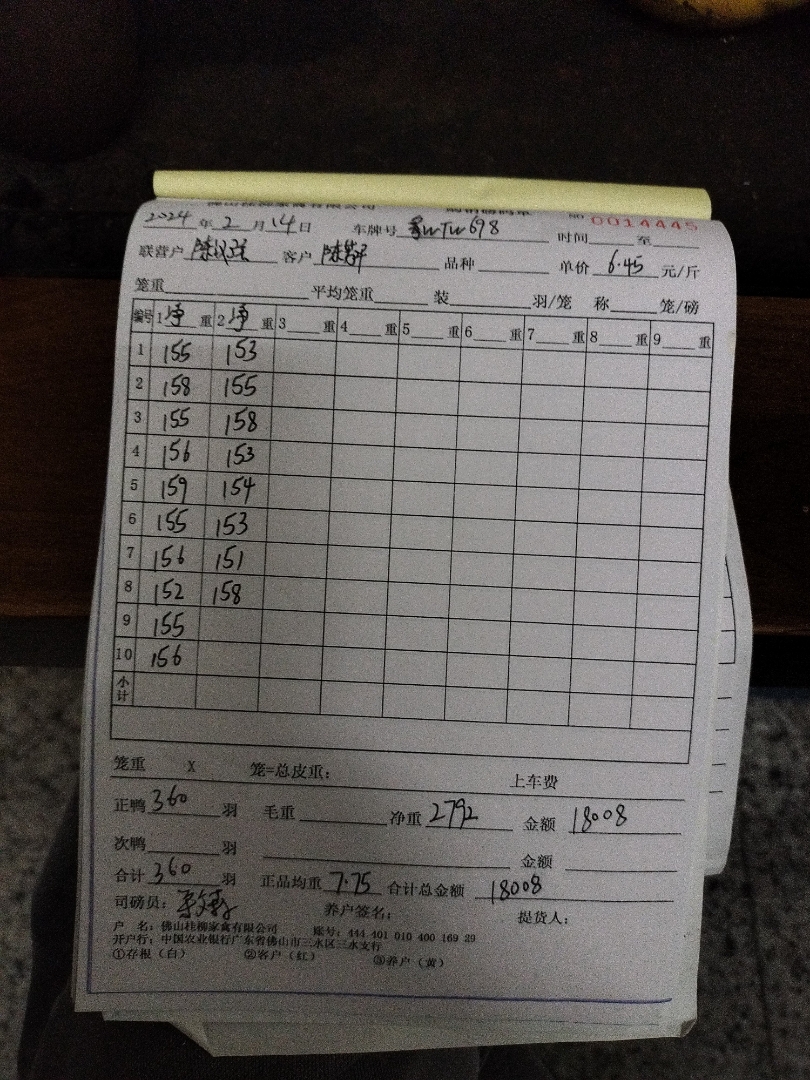 No 0014445
2024 年 2 月 14 日 车牌号 粤WTW698 时间 至
联营户 陈汉强 客户 品种 单价 6.45 元/斤
笼重 平均笼重 装 羽/笼 称 笼/磅
编号 1 净 重 2 净 重 3 重 4 重 5 重 6 重 7 重 8 重 9 重
1 155 153
2 158 155
3 155 158
4 156 153
5 159 154
6 155 153
7 156 151
8 152 158
9 155
10 156
小计
笼重 X 笼=总皮重: 上车费
正鸭 360 羽 毛重 净重 2792 金额 18008
次鸭 羽 金额
合计 360 羽 正品均重 7.75 合计总金额 18008
司磅员: 养户签名: 提货人:
户 名: 佛山桂柳家禽有限公司 账号: 444 401 010 400 169 29
开户行: 中国农业银行广东省佛山市三水区三水支行
①存根(白) ②客户(红) ③养户(黄)